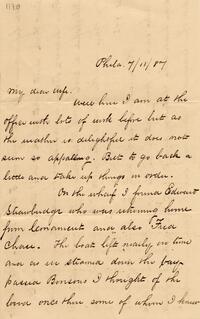 Phila. 7/11/87
My dear wife.
Well here I am at the
office with lots of work before but as
the weather is delightful it does not
seem so appalling. But to go back a
little and take up things in order.
On the wharf I found Edward
Strawbridge who was returning home
from and also Fred
Chase. The boat left nearly on time
and as we steamed down the bay
passed I thought of the
loved ones there some of whom I knew